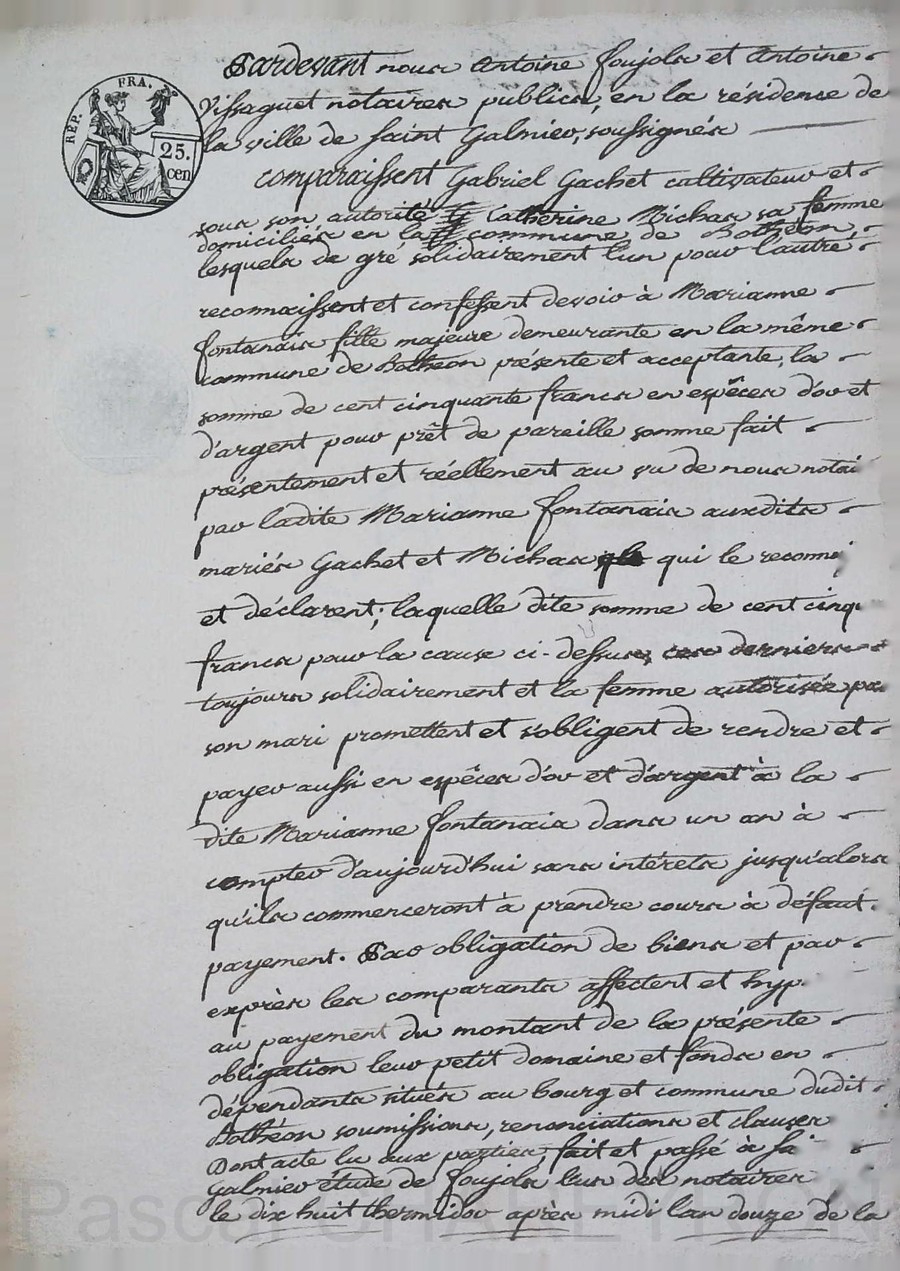 RÉP. FRA.
25.
cen
Pardevant nous Antoine foujols et Antoine
Vissaguet notaires publics, en la résidence de
la ville de saint Galmier, soussignés
comparaissent Gabriel Gachet cultivateur et
sous son autorité Catherine Michas sa femme
domiciliés en la commune de Bothéon,
lesquels de gré solidairement l'un pour l'autre
reconnaissent et confessent devoir à Marianne
fontanais fille majeure demeurante en la même
commune de Bothéon présente et acceptante, la
somme de cent cinquante francs en espèces d'or et
d'argent pour prêt de pareille somme fait
présentement et réellement au vu de nous notai
par ladite Marianne fontanais auxdits
mariés Gachet et Michas qui le reconnai
et déclarent; laquelle dite somme de cent cinqu
francs pour la cause ci-dessus, ces derniers
toujours solidairement et la femme autorisée pa
son mari promettent et s'obligent de rendre et
payer aussi en espèces d'or et d'argent à la
dite Marianne fontanais dans un an à
compter d'aujourd'hui sans intérets jusqu'alors
qu'ils commenceront à prendre cours à défaut
payement. Par obligation de biens et par
exprès les comparants affectent et hyp
au payement du montant de la présente
obligation leur petit domaine et fonds en
dépendants situés au bourg et commune dudit
Bothéon soumissions, renonciations et clauses
Dont acte lu aux parties fait et passé à sa
Galmier étude de foujols l'un des notaires
le dix huit thermidor après midi l'an douze de la